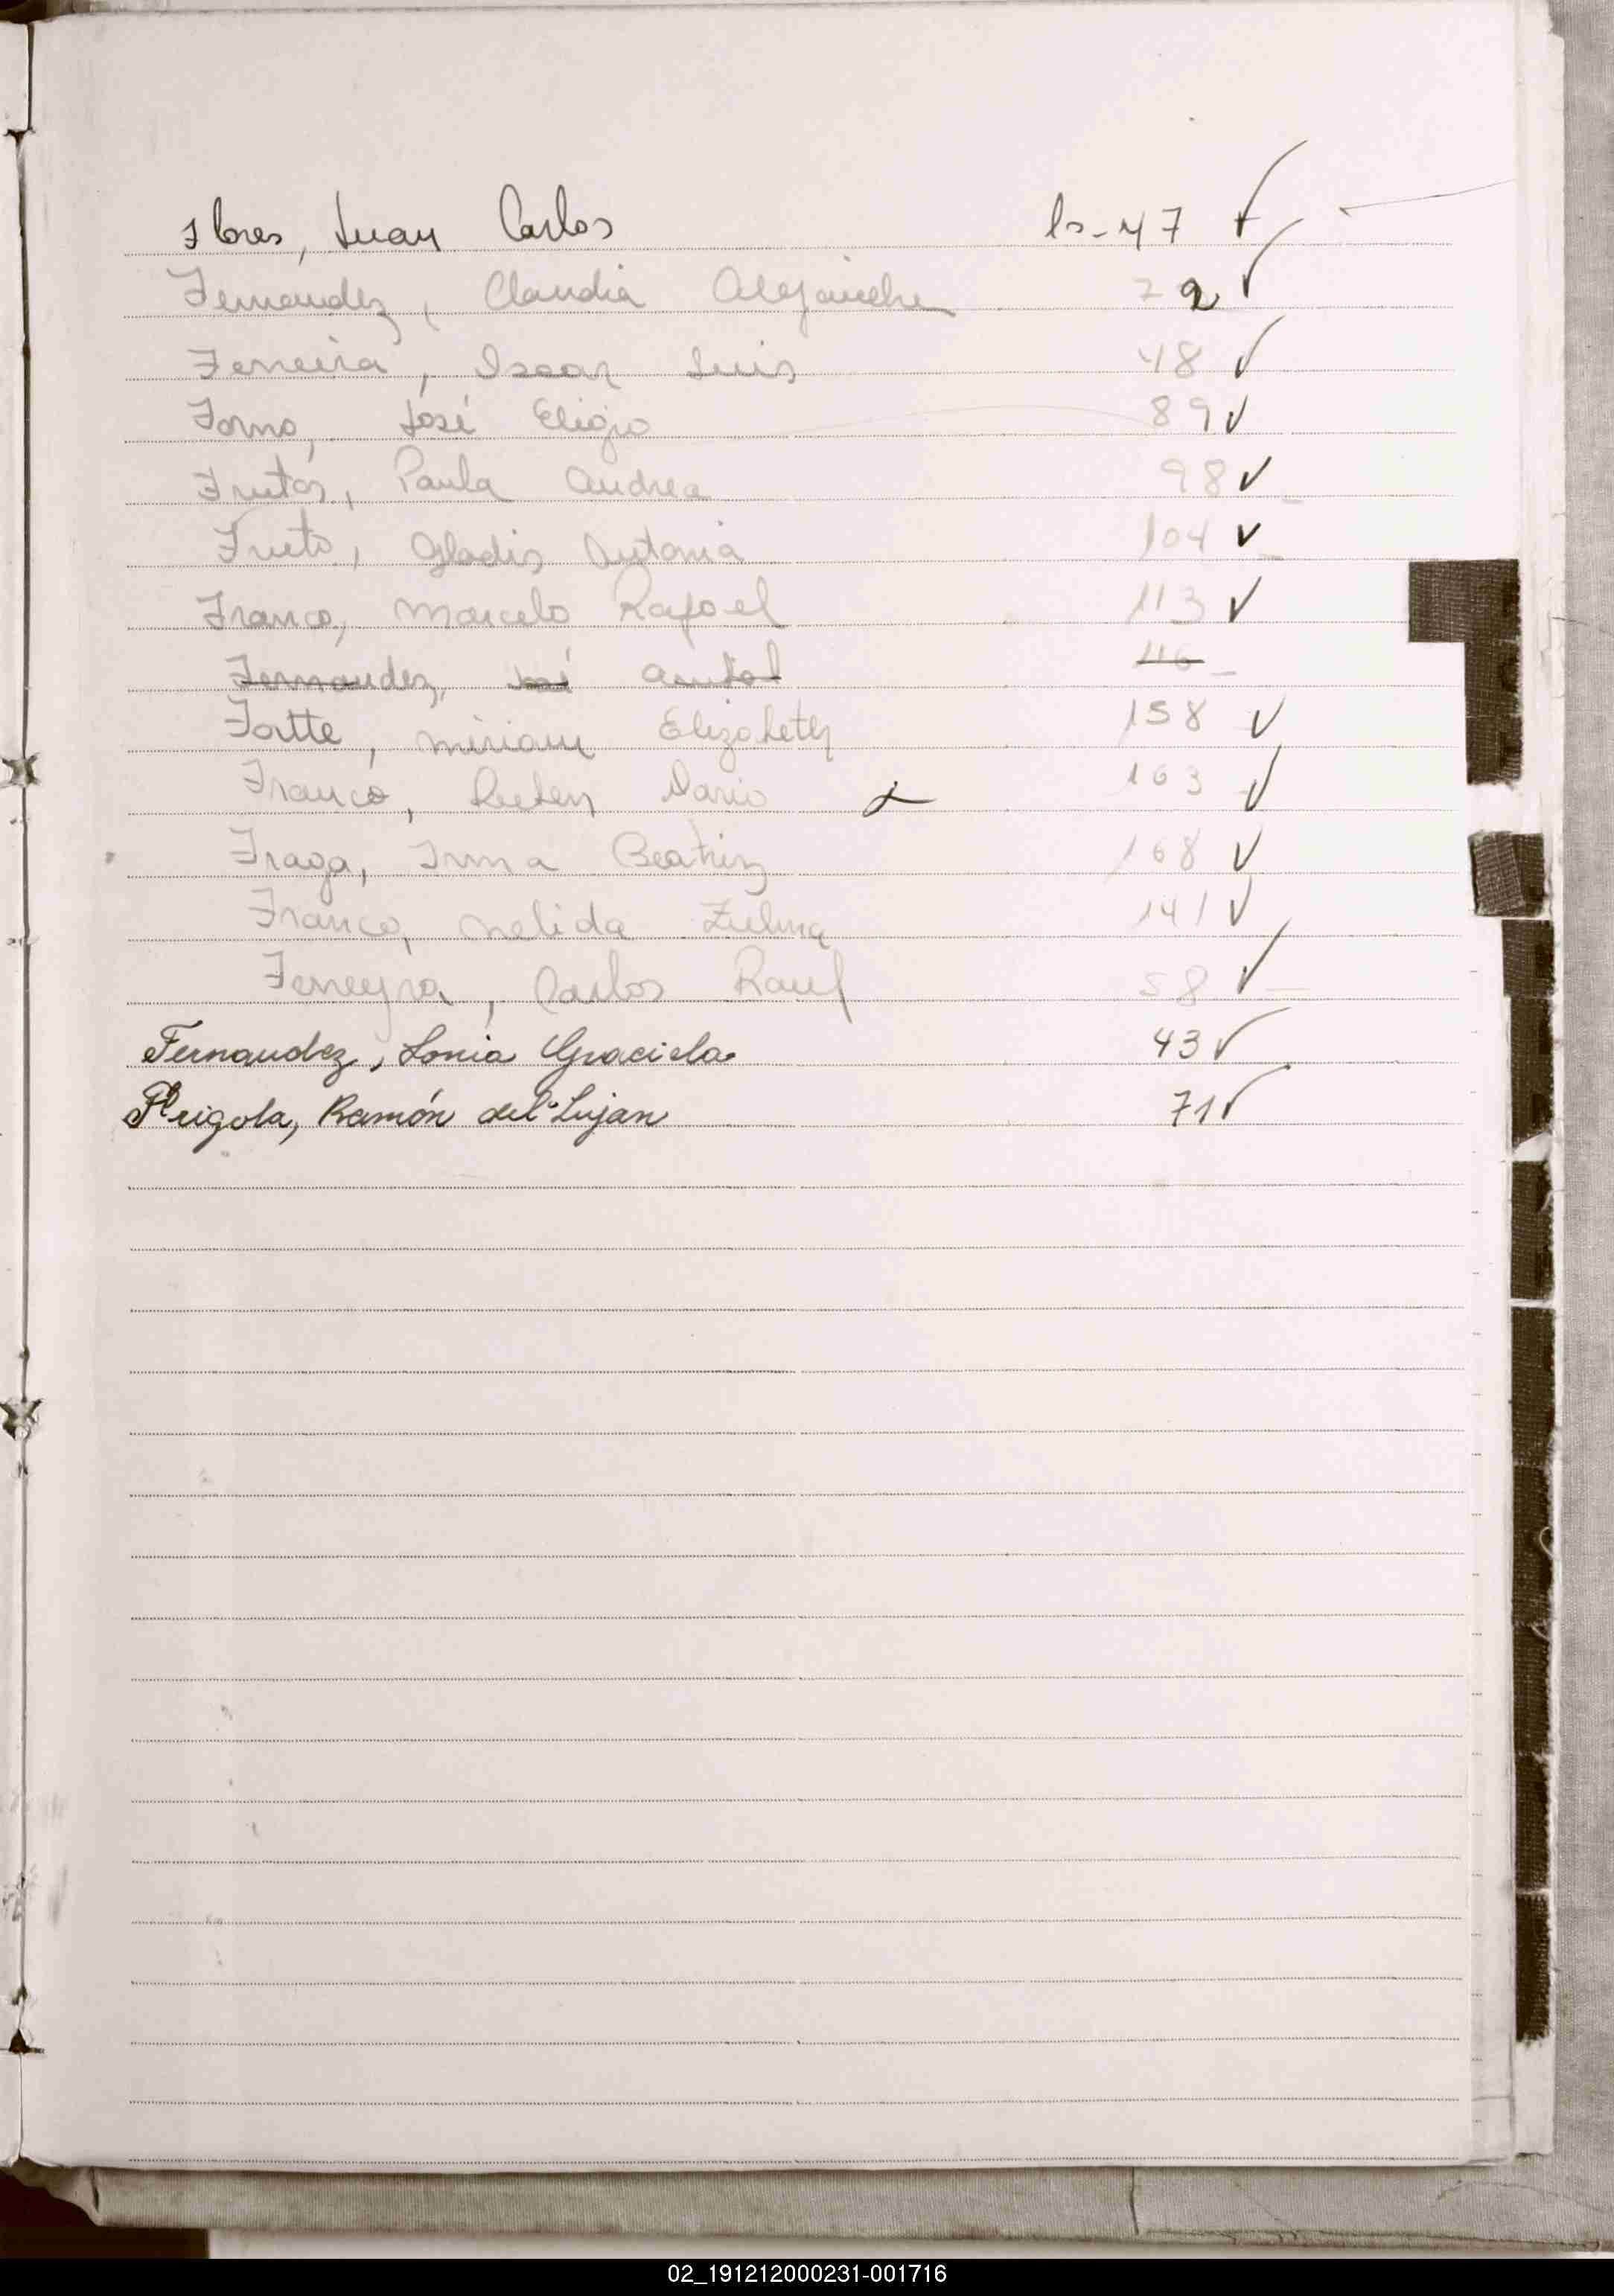 Flores, Juan Carlos ls-47 ✓
Fernandez, Claudia Alejandra 72 ✓
Ferreira, Isaar Luis 48 ✓
Forno, José Eligio 89 ✓
Frutos, Paula Andrea 98 ✓
Fruto, Gladis Antonia 104 ✓
Franco, Marcelo Rafael 113 ✓
Fernandez, José 116
Fortte, Miriam Elizabeth 158 ✓
Franco, Ruben Dario 163 ✓
Fraga, Irma Beatriz 168 ✓
Franco, Nelida Zulma 141 ✓
Ferreyra, Carlos Raul 58 ✓
Fernandez, Sonia Graciela 43 ✓
Fleigola, Ramón del Lujan 71 ✓
02_191212000231-001716